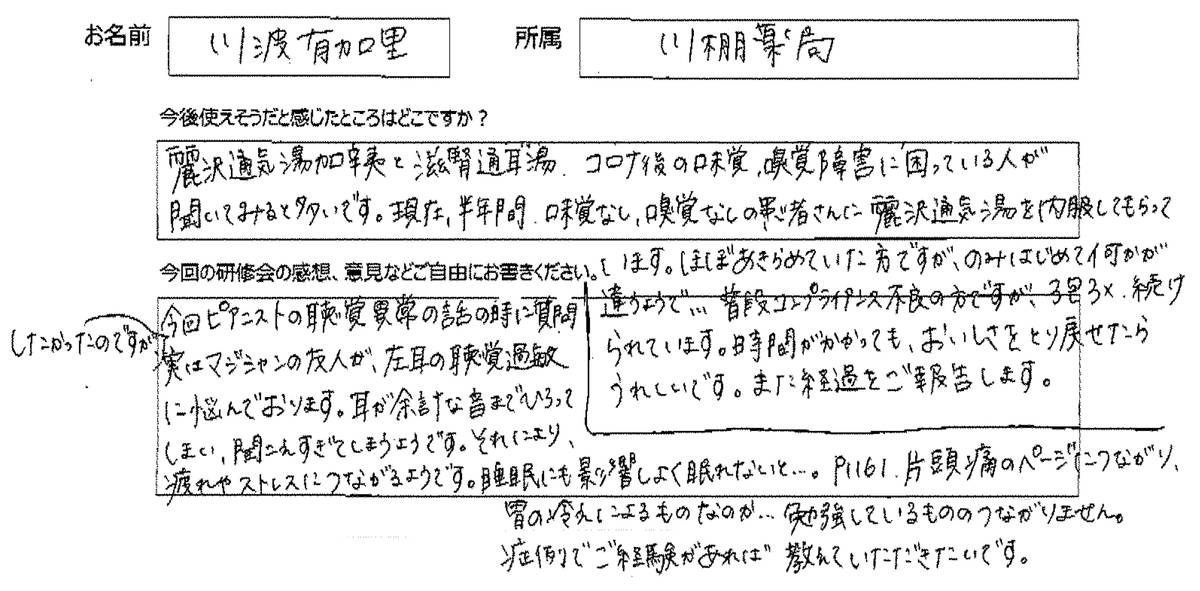 お名前 川波有加里 所属 川棚薬局
今後使えそうだと感じたところはどこですか？
麗沢通気湯加辛夷と滋腎通耳湯．コロナ後の味覚，嗅覚障害に困っている人が
聞いてみると多いです。現在，半年間．味覚なし，嗅覚なしの患者さんに麗沢通気湯を内服してもらって
います。ほぼあきらめていた方ですが、のみはじめて何かが
違うようで… 普段コンプライアンス不良の方ですが、3包3×．続け
られています。時間がかかっても、おいしさをとり戻せたら
うれしいです。また経過をご報告します。
今回の研修会の感想、意見などご自由にお書きください。
今回ピアニストの聴覚異常の話の時に質問
したかったのですが
実はマジシャンの友人が、左耳の聴覚過敏
に悩んでおります。耳が余計な音までひろって
しまい，聞こえすぎてしまうようです。それにより、
疲れやストレスにつながるようです。睡眠にも影響しよく眠れないと…。P1161．片頭痛のページにつながり、
胃の冷えによるものなのか… 勉強しているもののつながりません。
症例でご経験があれば 教えていただきたいです。